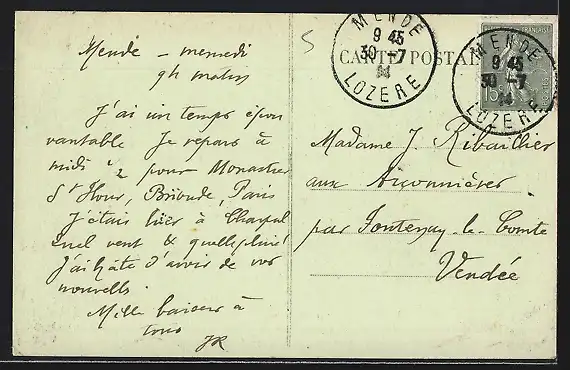 Mende – mercredi
9h matin
J'ai un temps épou
vantable Je repars à
midi ½ pour Monastier
St Flour, Brioude, Paris
J'étais hier à
quel vent & quelle pluie
J'ai hâte d'avoir de vos
nouvelles
Mille baisers à
tous
JR
5
CARTE POSTALE
MENDE
9 45
30 -7
14
LOZERE
MENDE
9 45
30 -7
14
LOZERE
FRANÇAISE
15c
Madame J. Ribaillier
aux Siçonnières
par Fontenay-le-Comte
Vendée